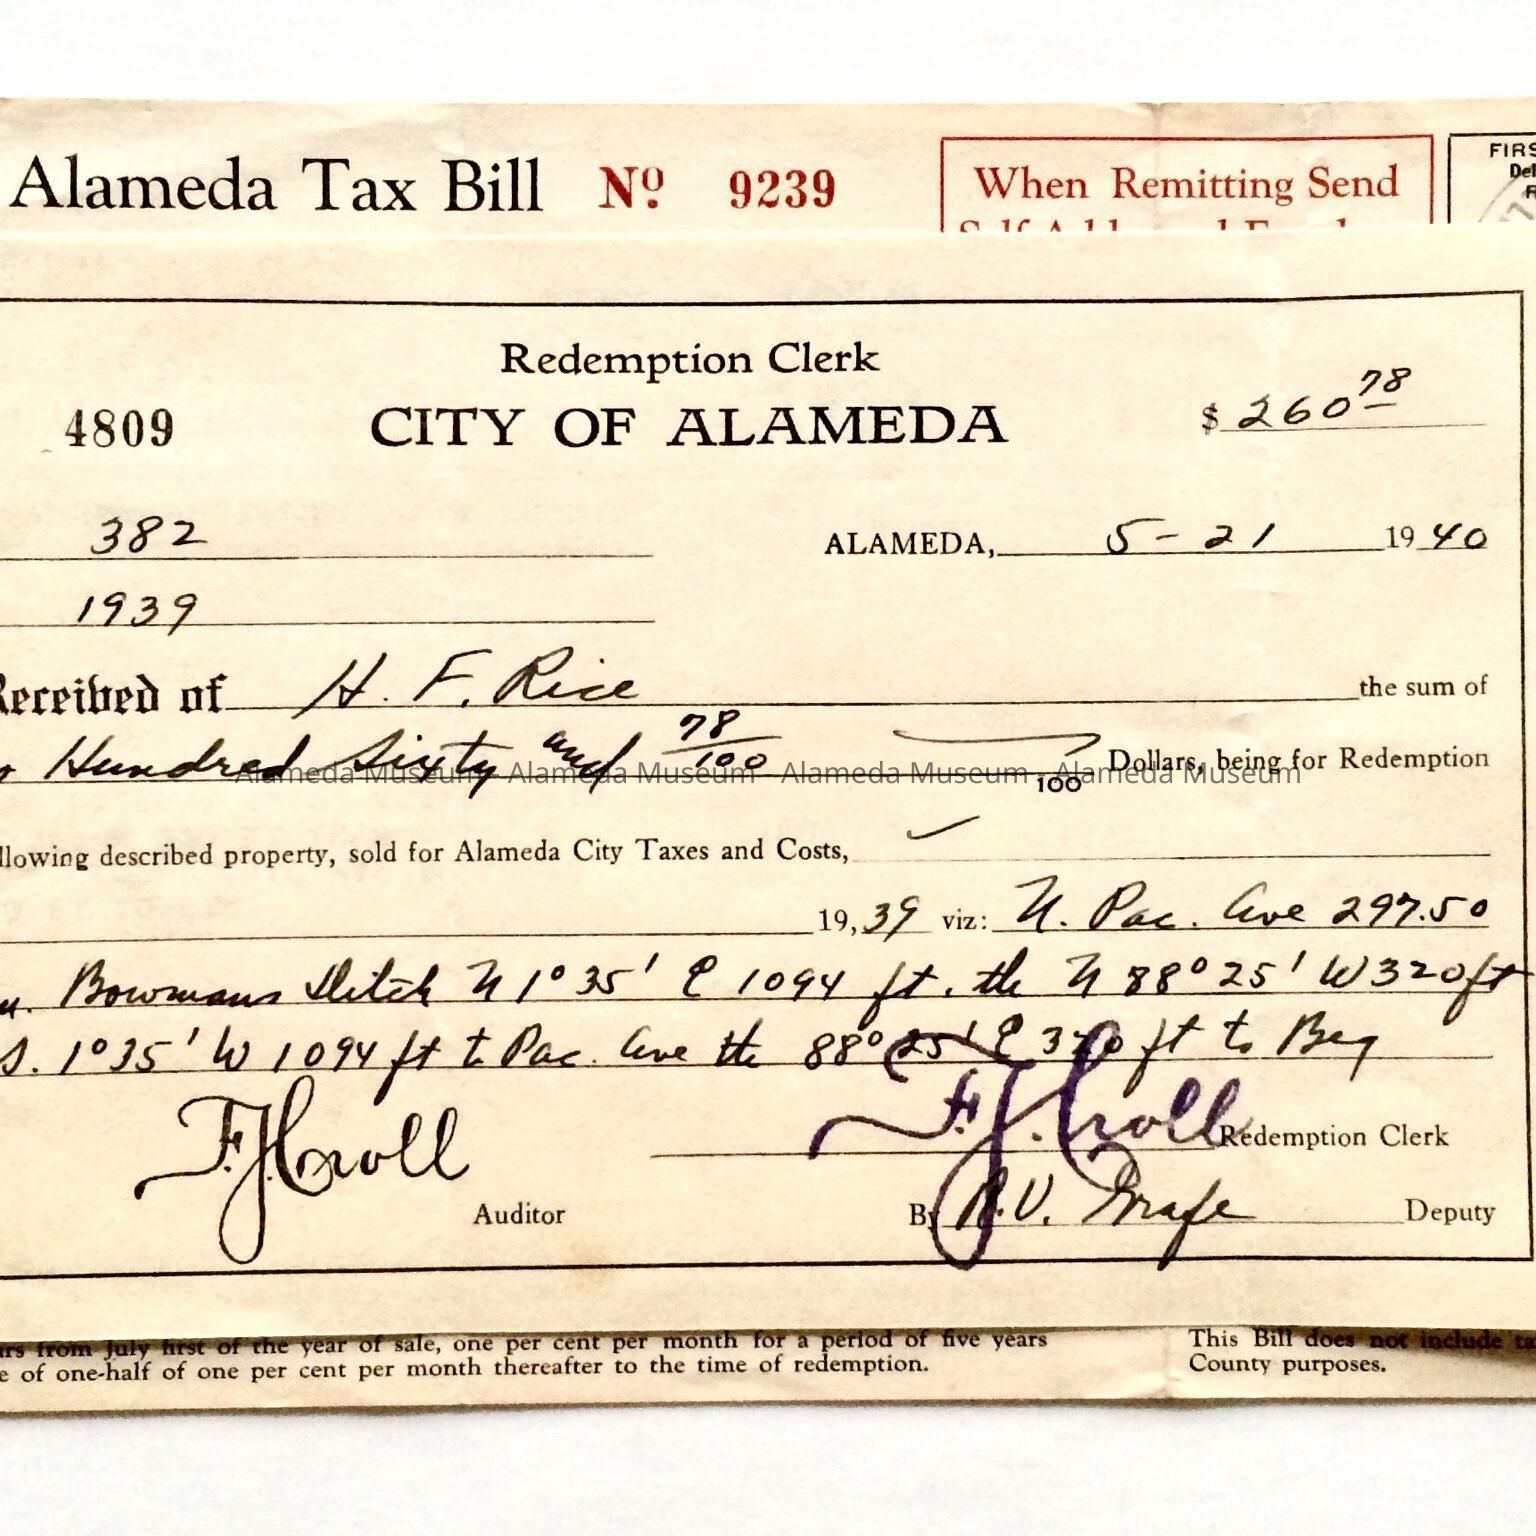 Alameda Tax Bill Nº 9239
When Remitting Send
FIRS
Redemption Clerk
4809 CITY OF ALAMEDA $ 260 78
382 ALAMEDA, 5-21 1940
1939
Received of H. F. Rice the sum of
Hundred Sixty and 78/100 100 Dollars, being for Redemption
Alameda Museum Alameda Museum Alameda Museum Alameda Museum
llowing described property, sold for Alameda City Taxes and Costs,
19,39 viz: N. Pac. Ave 297.50
Bowmans Ditch N 1° 35' E 1094 ft. th N 88° 25' W 320 ft
S. 1° 35' W 1094 ft t Pac. Ave th 88° 25' E 320 ft to Beg
F. J. Croll F. J. Croll Redemption Clerk
Auditor By R.V. Grafe Deputy
rs from July first of the year of sale, one per cent per month for a period of five years
e of one-half of one per cent per month thereafter to the time of redemption.
This Bill does not include ta
County purposes.